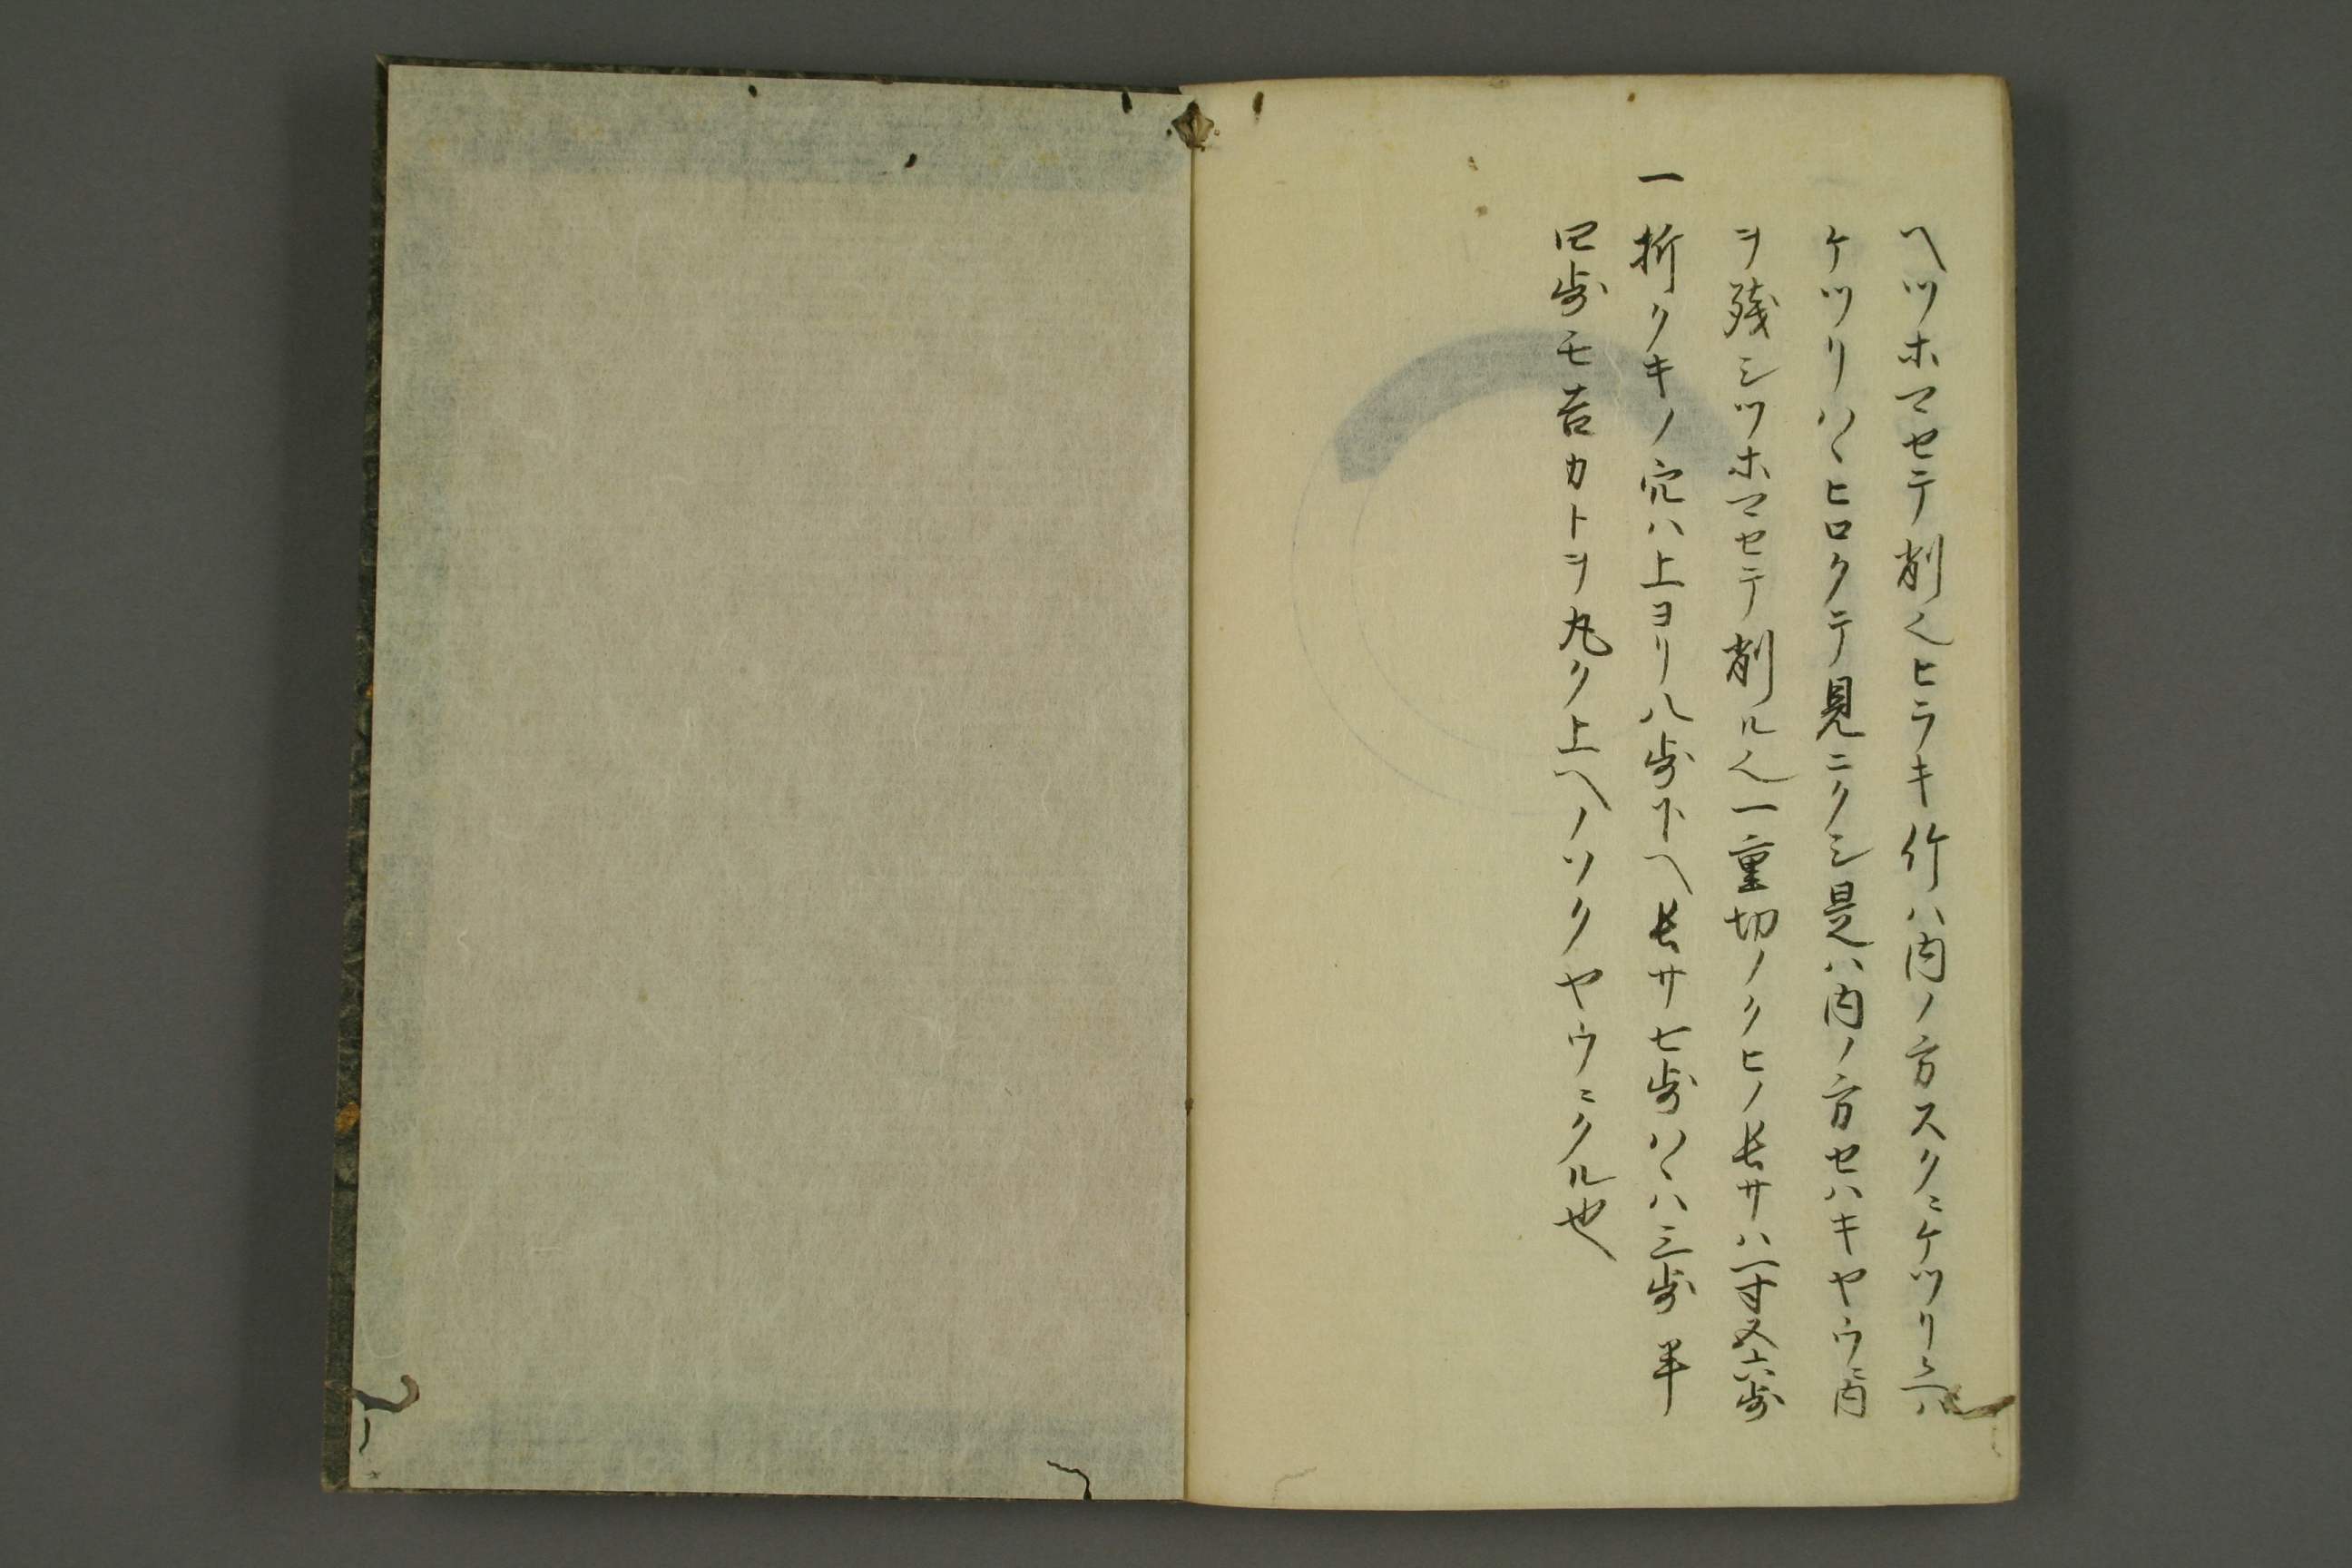 ヘツホマセテ削也ヒラキ竹ハ内ノ方スクニケツリテハ
ケツリハヽヒロクテ見ニクシ是ハ内ノ方セハキヤウニ内
ヲ残シツホマセテ削ル也一重切ノクヒノ長サハ一寸又六歩
一 折クキノ穴ハ上ヨリ八歩下ヘ長サ七歩ハヽハ三歩半
四歩モ吉カトヲ丸ク上ヘノソクヤウニクル也